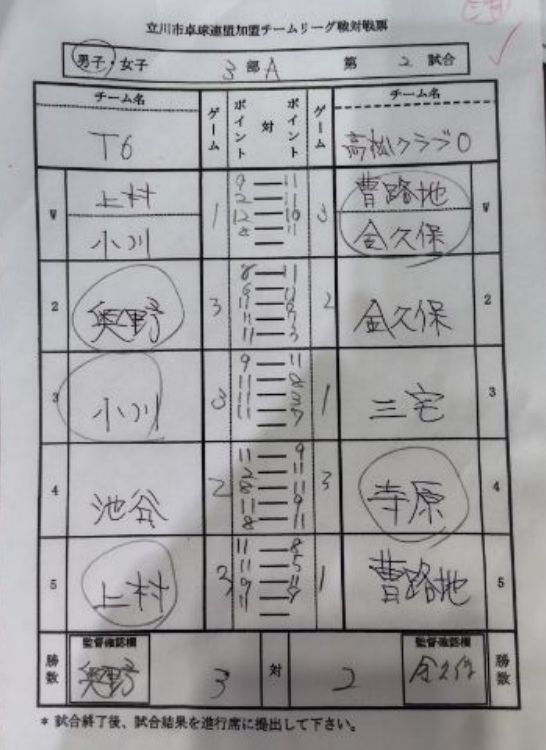 立川市卓球連盟加盟チームリーグ戦対戦票
男子・女子 3部A 第 2 試合
チーム名 ゲーム ポイント 対 ポイント ゲーム チーム名
T6 高松クラブO
W 上村 小川 1 3 曹路地 金久保 W
9 — 11
2 — 11
12 — 10
8 — 11
—
2 奥野 3 2 金久保 2
8 — 11
11 — 3
3 小川 3 1 三宅 3
9 — 11
11 — 8
11 — 7
—
4 池谷 2 3 寺原 4
11 — 9
8 — 11
11 — 9
8 — 11
5 上村 3 1 曹路地 5
11 — 8
11 — 5
9 — 11
—
勝数 監督確認欄 奥野 3 対 2 監督確認欄 金久保 勝数
* 試合終了後、試合結果を進行席に提出して下さい。